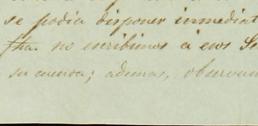 se podia disponer inmediat
fha. no escribimos á esos Se
su cuenta; ademas, observan